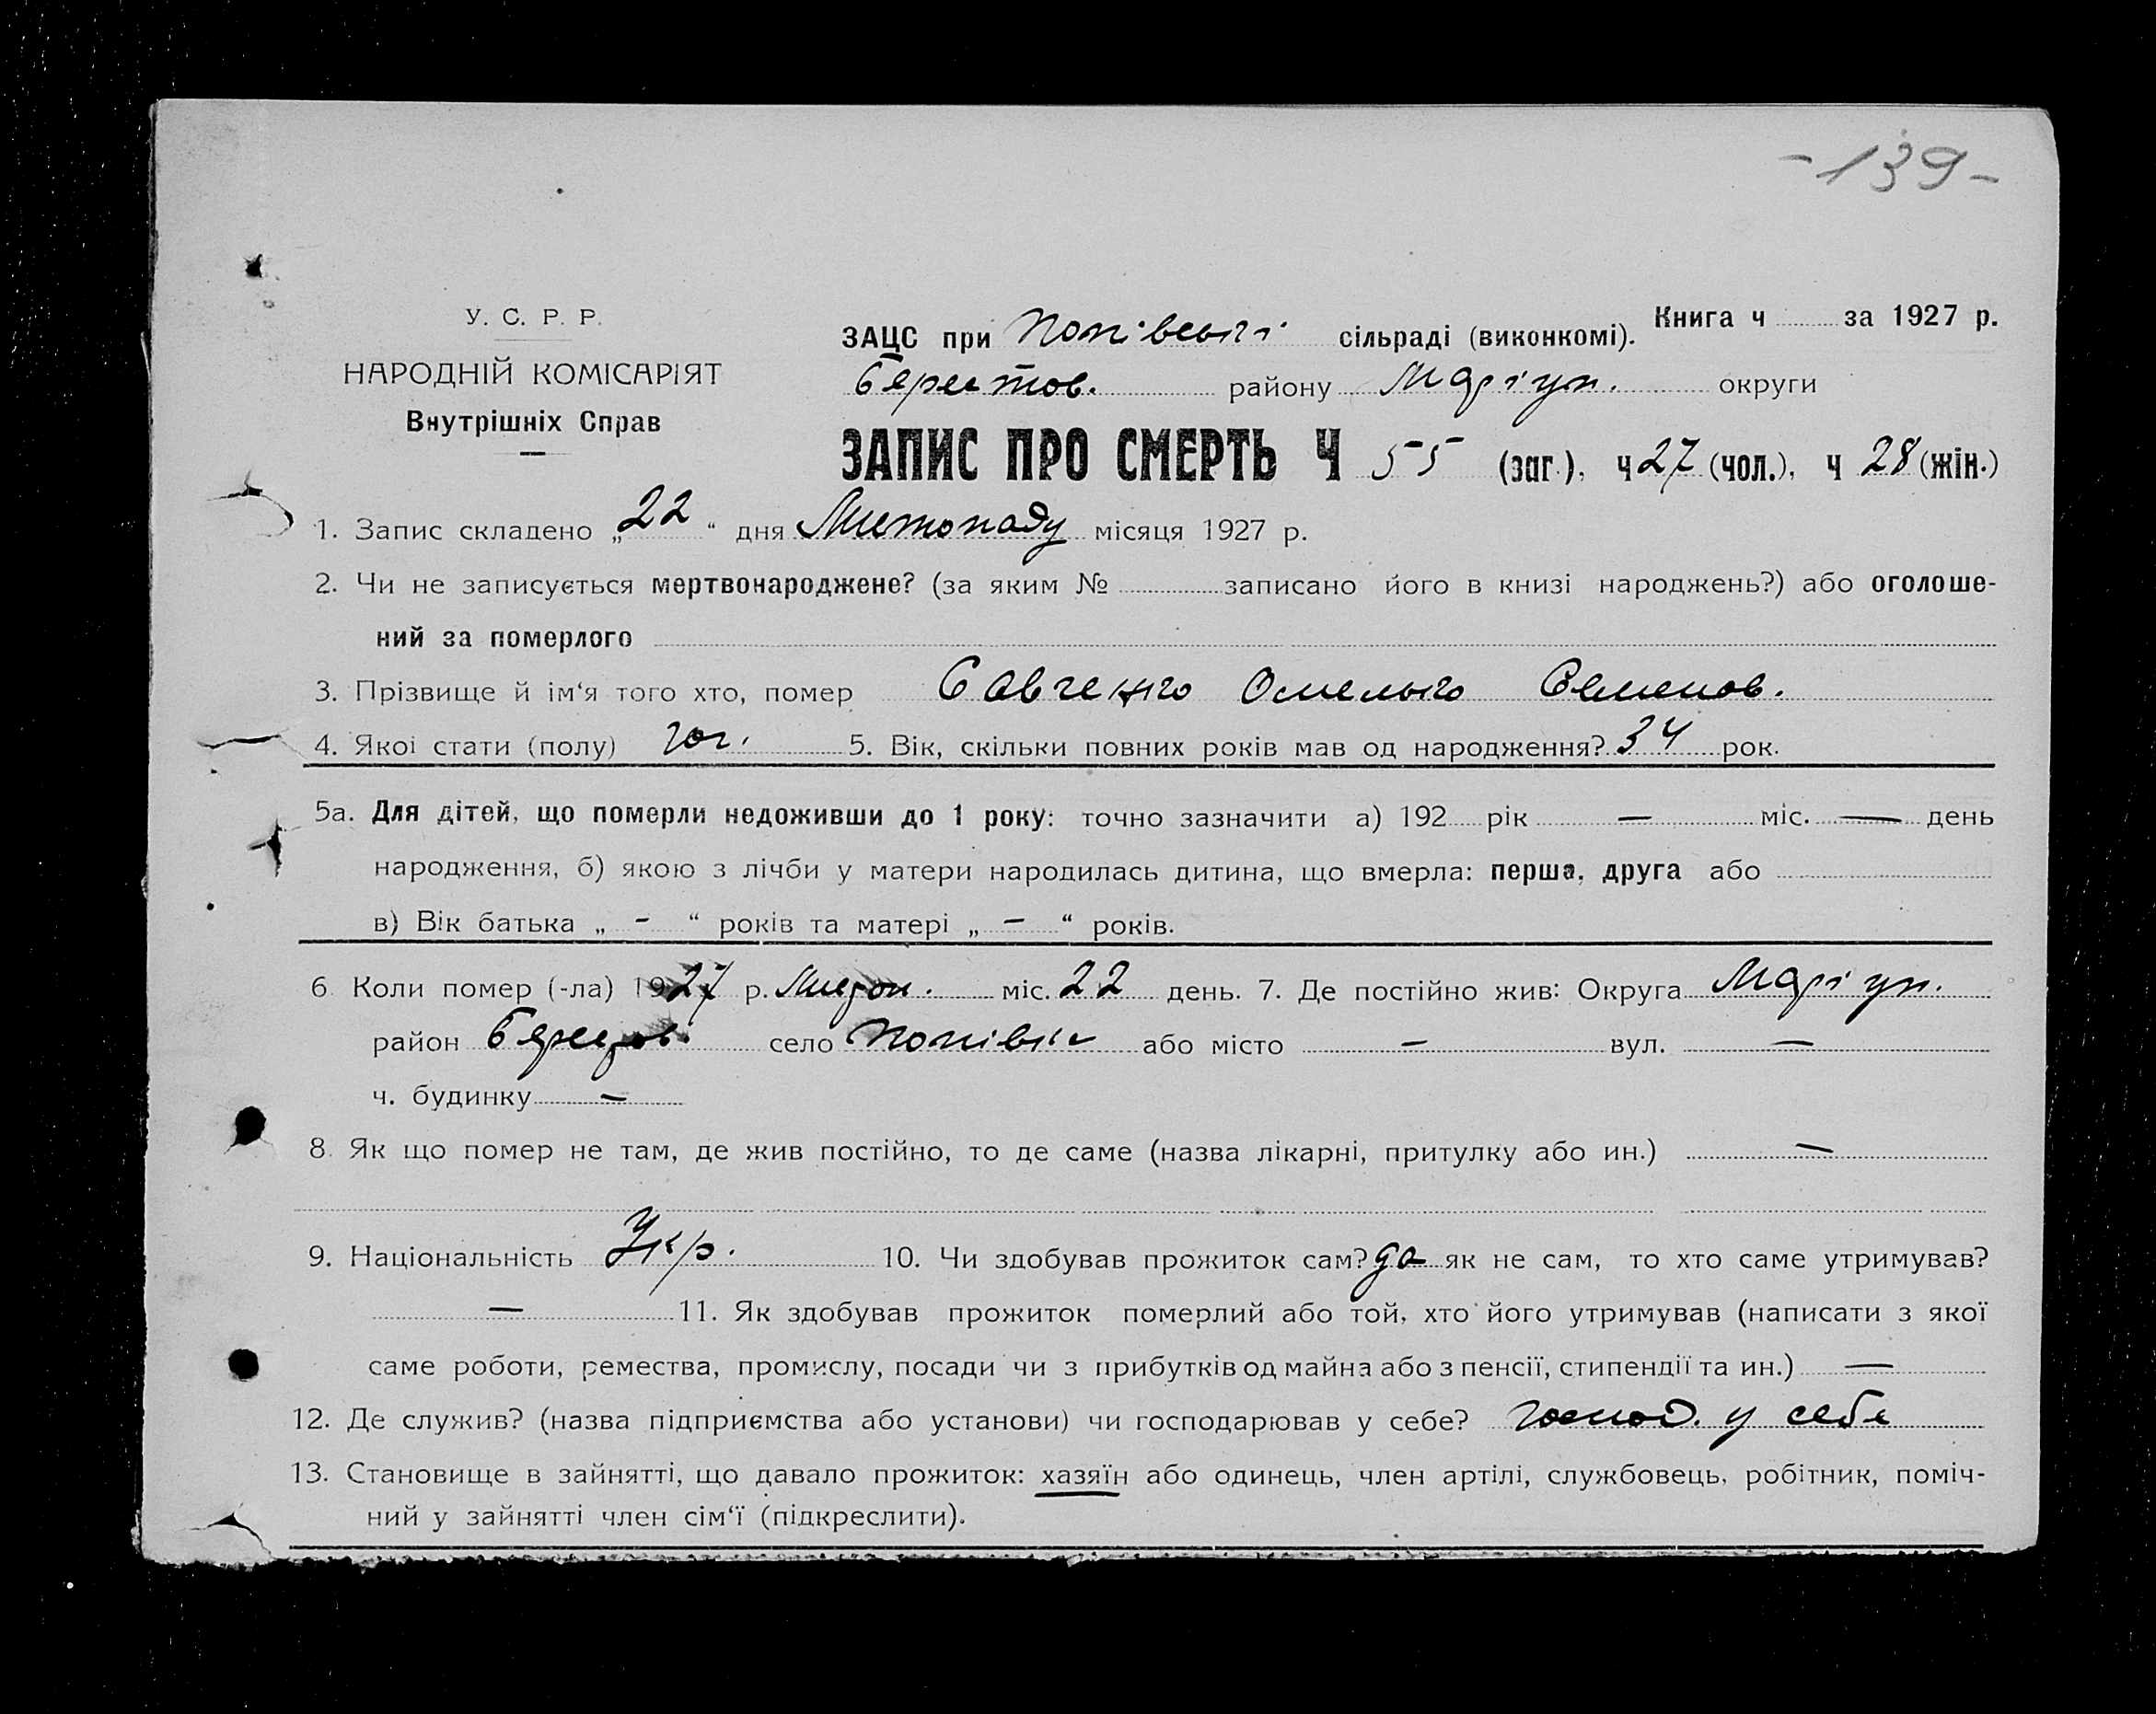 -139-
У. С. Р. Р.
НАРОДНІЙ КОМІСАРІЯТ
Внутрішніх Справ
Книга ч за 1927 р.
ЗАЦС при Попівській сільраді (виконкомі).
Берестов. району Маріуп. округи
ЗАПИС ПРО СМЕРТЬ Ч 55 (заг.), ч 27 (чол.), ч 28 (жін.)
1. Запис складено „22“ дня Листопаду місяця 1927 р.
2. Чи не записується мертвонароджене? (за яким № записано його в книзі народжень?) або оголоше-
ний за померлого
3. Прізвище й ім‘я того хто, помер Савченко Омелько Семенов.
4. Якої стати (полу) чол. 5. Вік, скільки повних років мав од народження? 34 рок.
5а. Для дітей, що померли недоживши до 1 року: точно зазначити а) 192 рік — міс. — день
народження, б) якою з лічби у матери народилась дитина, що вмерла: перша, друга або
в) Вік батька „ - “ років та матері „ — “ років.
6 Коли помер (-ла) 1927 р. Листоп. міс. 22 день. 7. Де постійно жив: Округа Маріуп.
район Берестов. село Попівка або місто — вул. —
ч. будинку —
8. Як що помер не там, де жив постійно, то де саме (назва лікарні, притулку або ин.) —
9. Національність Укр. 10. Чи здобував прожиток сам? да як не сам, то хто саме утримував?
— 11. Як здобував прожиток померлий або той, хто його утримував (написати з якої
саме роботи, ремества, промислу, посади чи з прибутків од майна або з пенсії, стипендії та ин.) —
12. Де служив? (назва підприємства або установи) чи господарював у себе? господ. у себе
13. Становище в зайнятті, що давало прожиток: хазяїн або одинець, член артілі, службовець, робітник, поміч-
ний у зайнятті член сім‘ї (підкреслити).